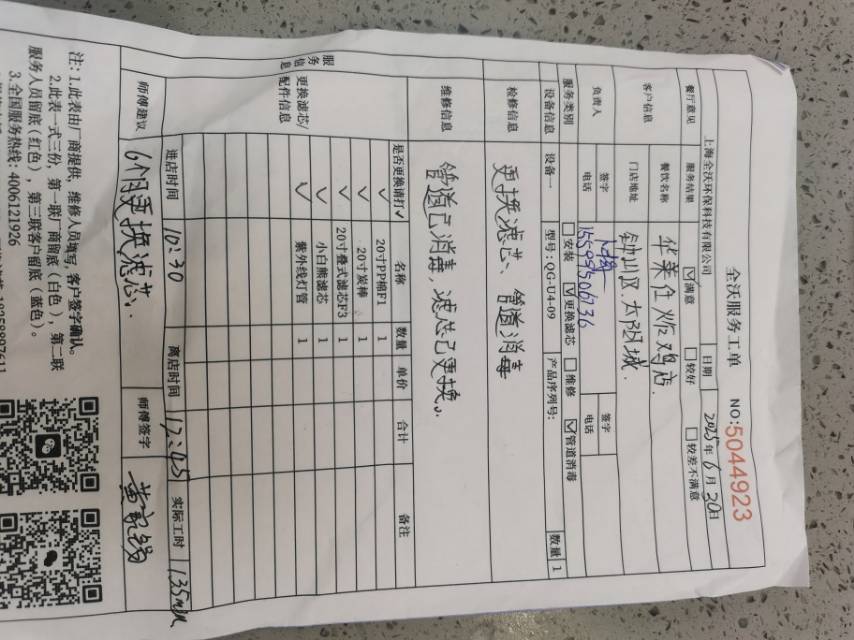 全沃服务工单
NO:5044923
上海全沃环保科技有限公司 日期 2025年6月20日
餐厅意见 服务结果 ☑满意 □较好 □较差不满意
客户信息 餐饮名称 华莱仕炸鸡店.
门店地址 钟山区.太阳城.
负责人 签字 签字
电话 15599506736 电话
服务类别 □安装 ☑更换滤芯 □维修 ☑管道消毒
设备信息 设备一 型号:QG-U4-09 产品序列号: 数量 1
检修信息 更换滤芯、管道消毒
维修信息 管道已消毒,滤芯已更换。
服务信息
更换滤芯/配件信息
是否更换请打✓ 名称 数量 单价 合计 备注
✓ 20寸PP棉F1 1
✓ 20寸炭棒 1
✓ 20寸叠式滤芯F3 1
✓ 小白熊滤芯 1
✓ 紫外线灯管 1
进店时间 10:30 离店时间 12:45 实际工时 135min
师傅建议 6个月更换滤芯. 师傅签字
注:1.此表由厂商提供,维修人员填写,客户签字确认。
2.此表一式三份,第一联厂商留底(白色),第二联
服务人员留底(红色),第三联客户留底(蓝色)。
3.全国服务热线:4006121926